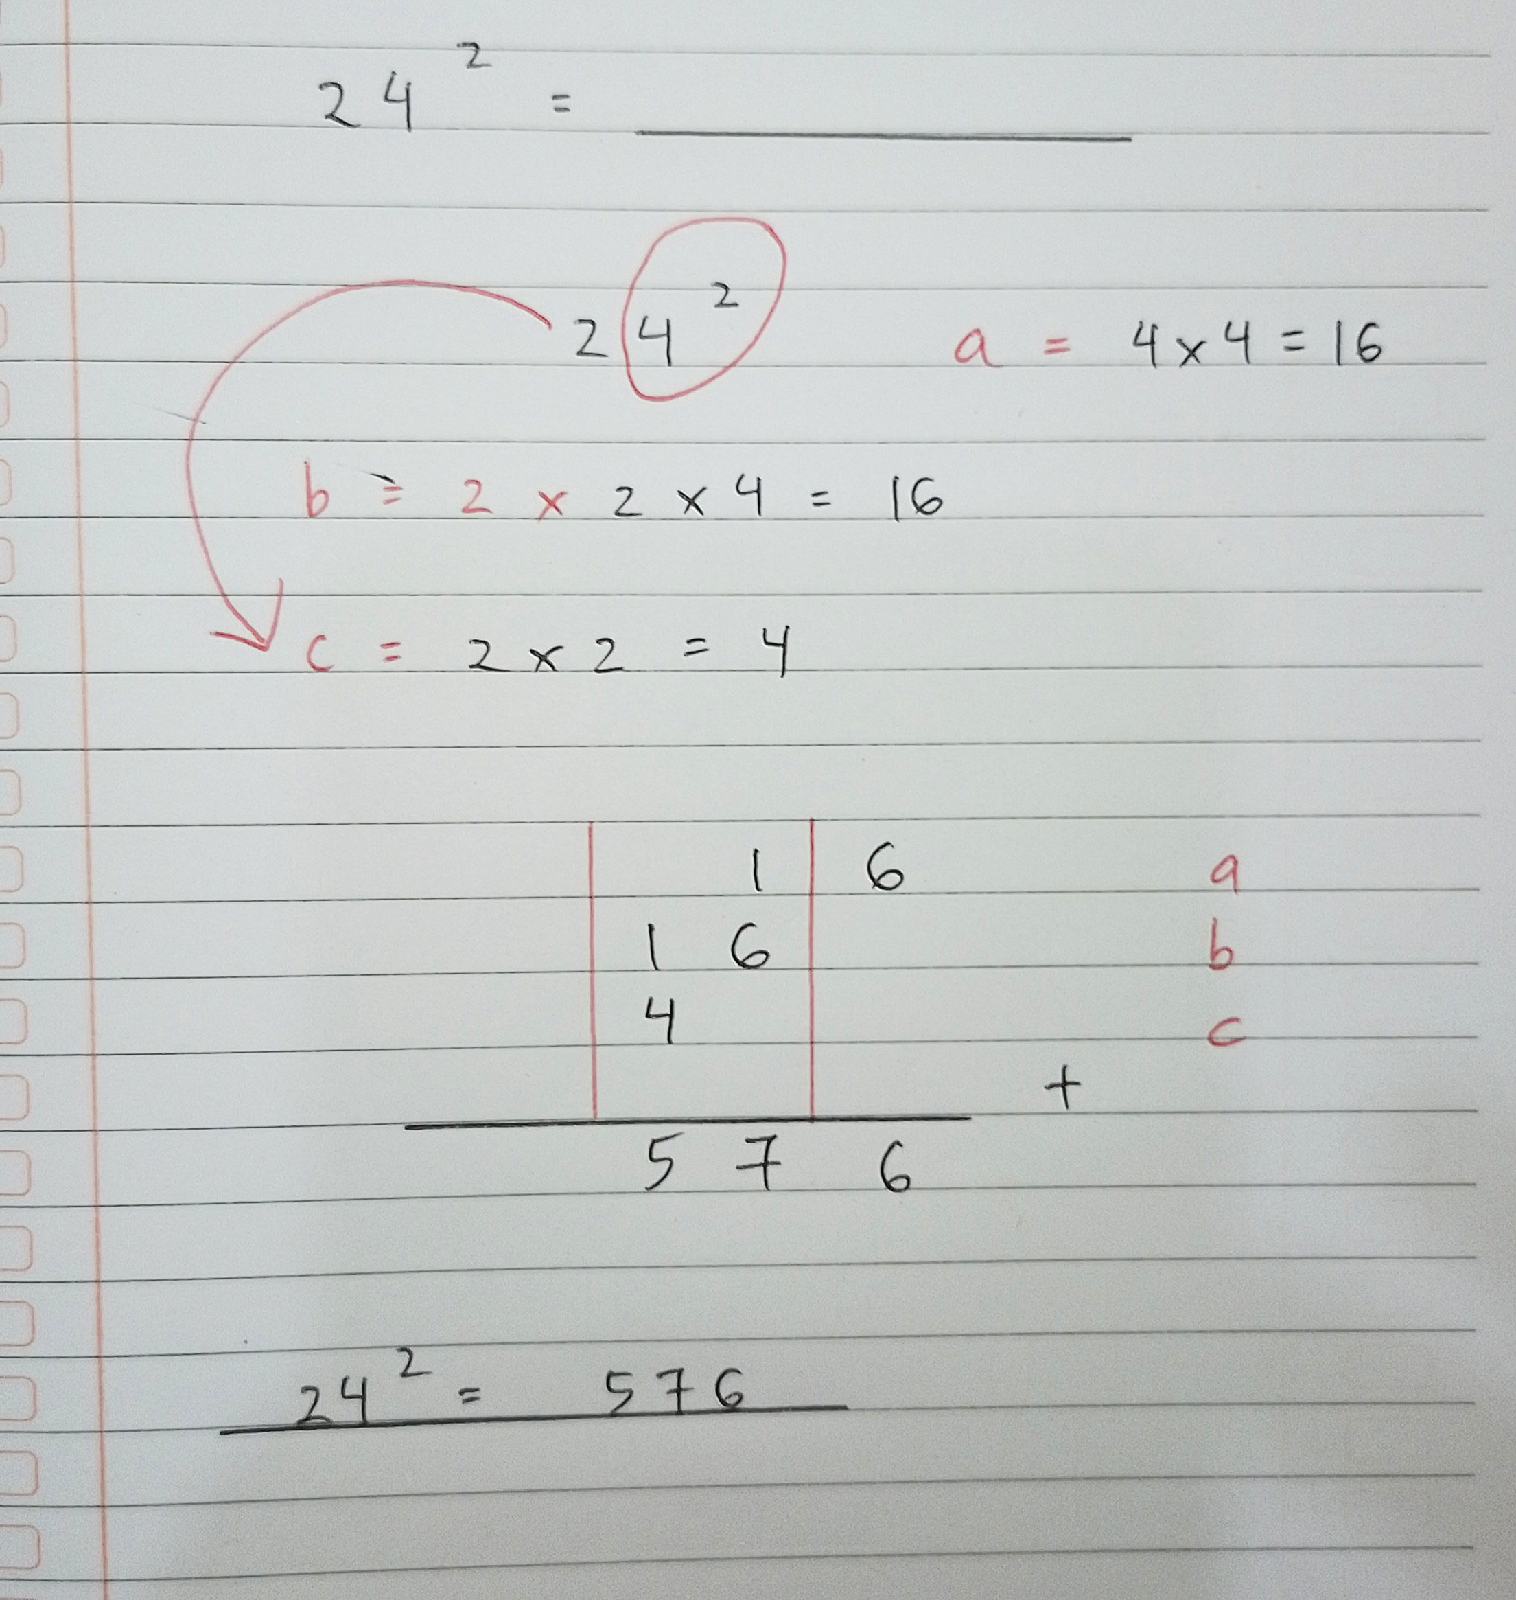 24² = ___________
24² a = 4 x 4 = 16
b = 2 x 2 x 4 = 16
c = 2 x 2 = 4
1 6 a
1 6 b
4 c
+
5 7 6
24² = 576